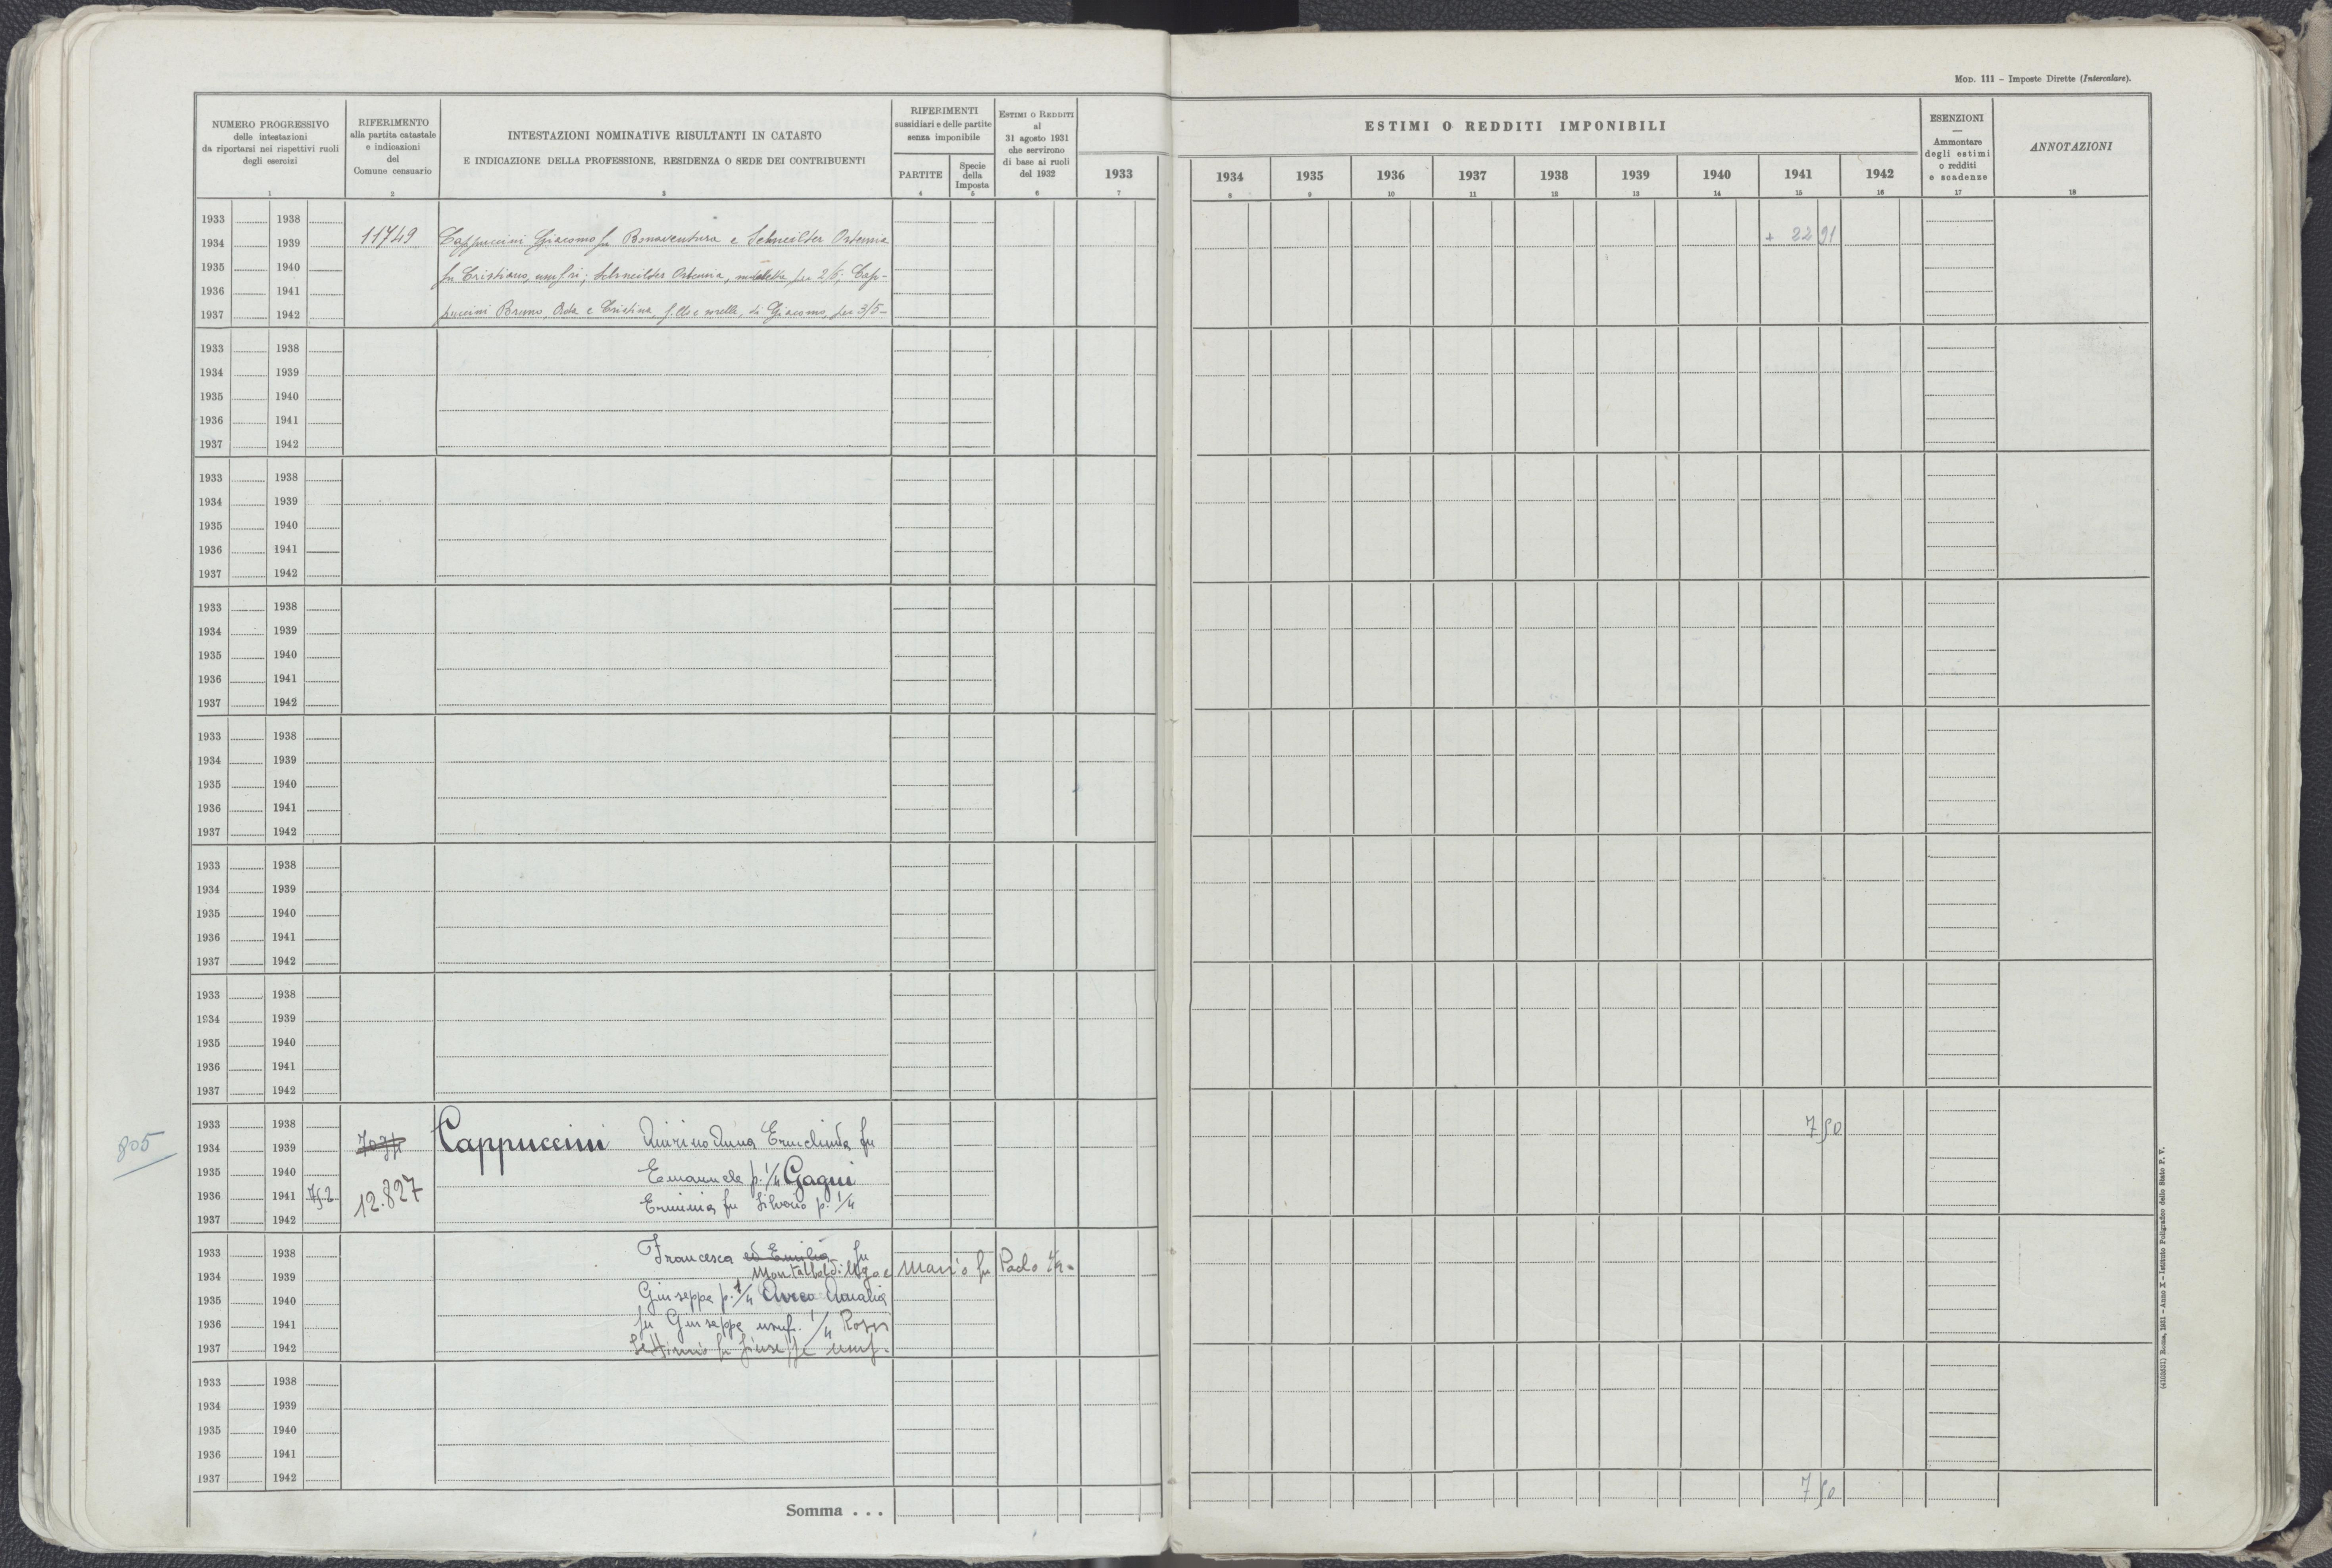 Mod. 111 – Imposte Dirette (Intercalare).
NUMERO PROGRESSIVO
delle intestazioni
da riportarsi nei rispettivi ruoli
degli esercizi
1
RIFERIMENTO
alla partita catastale
e indicazioni
del
Comune censuario
2
INTESTAZIONI NOMINATIVE RISULTANTI IN CATASTO
E INDICAZIONE DELLA PROFESSIONE, RESIDENZA O SEDE DEI CONTRIBUENTI
3
RIFERIMENTI
sussidiari e delle partite
senza imponibile
PARTITE
4
Specie
della
Imposta
5
ESTIMI O REDDITI
al
31 agosto 1931
che servirono
di base ai ruoli
del 1932
6
1933
7
ESTIMI O REDDITI IMPONIBILI
1934 1935 1936 1937 1938 1939 1940 1941 1942
8 9 10 11 12 13 14 15 16
ESENZIONI
—
Ammontare
degli estimi
o redditi
e scadenze
17
ANNOTAZIONI
18
1933 1938
1934 1939 11749 Cappuccini Giacomo fu Bonaventura e Schneilter Ortensia + 22 91
1935 1940 fu Cristiano, usuf.ri; Schneilter Ortensia, per 2/5; Cap-
1936 1941
1937 1942 puccini Bruno, Oda e Cristina, f.llo e sorelle, di Giacomo, per 3/5-
1933 1938
1934 1939
1935 1940
1936 1941
1937 1942
1933 1938
1934 1939
1935 1940
1936 1941
1937 1942
1933 1938
1934 1939
1935 1940
1936 1941
1937 1942
1933 1938
1934 1939
1935 1940
1936 1941
1937 1942
1933 1938
1934 1939
1935 1940
1936 1941
1937 1942
1933 1938
1934 1939
1935 1940
1936 1941
1937 1942
1933 1938
805 1934 1939 Cappuccini fu 7 50
1935 1940 Emanuele p. 1/4 Gagni
1936 1941 752 12.827 Erminia fu Silverio p. 1/4
1937 1942
1933 1938 Francesca ed Emilia fu
1934 1939 Mario fu Paolo
1935 1940 Giuseppe p. 1/4 Amalia
1936 1941 fu Giuseppe usuf. 1/4 Rossi
1937 1942 Settimio fu Giuseppe usuf.
1933 1938
1934 1939
1935 1940
1936 1941
1937 1942
Somma . . . 7 50
(4103631) Roma, 1931 – Anno X – Istituto Poligrafico dello Stato P. V.